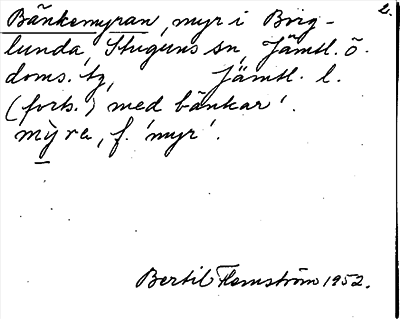 2.
Bänkemyran, myr i Borg-
lunda, Stuguns sn, Jämtl. ö.
doms. tg, Jämtl. l.
(forts.) med bänkar'.
myra, f. 'myr'.
Bertil Flemström 1952.